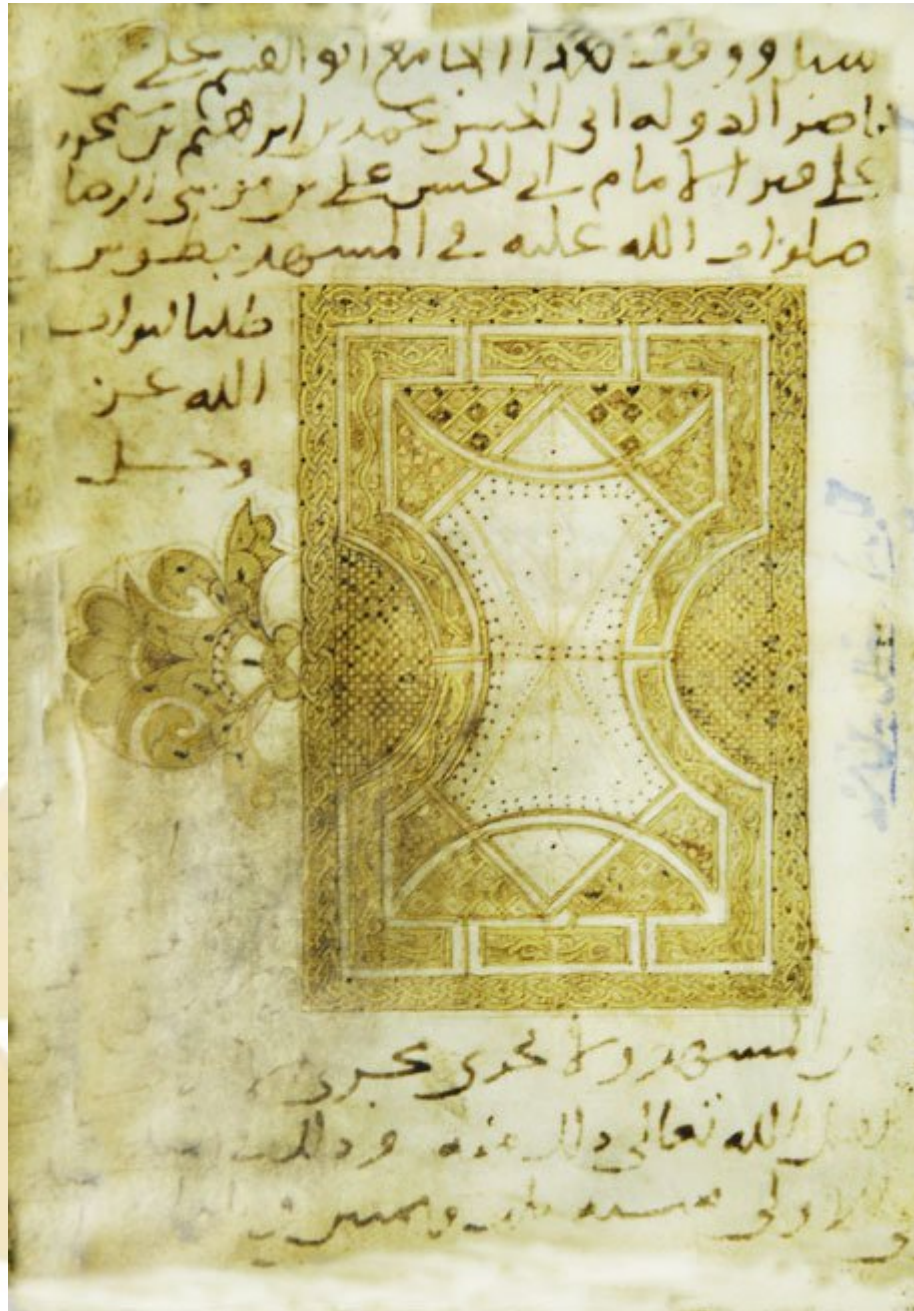 سبل ووقف هذا الجامع ابو القسم علي بن
ناصر الدوله ابي الحسن محمد بن ابرهيم بن سمجور
علي قبر الامام ابي الحسن علي بن موسى الرضا
صلوات الله عليه في المشهد بطوس
طلبا لثواب
الله عز
وجل
المشهد ولا يجرى مجرى
الله تعالى ذلك منه وذلك
الاولى سنه ثلث وثمنين